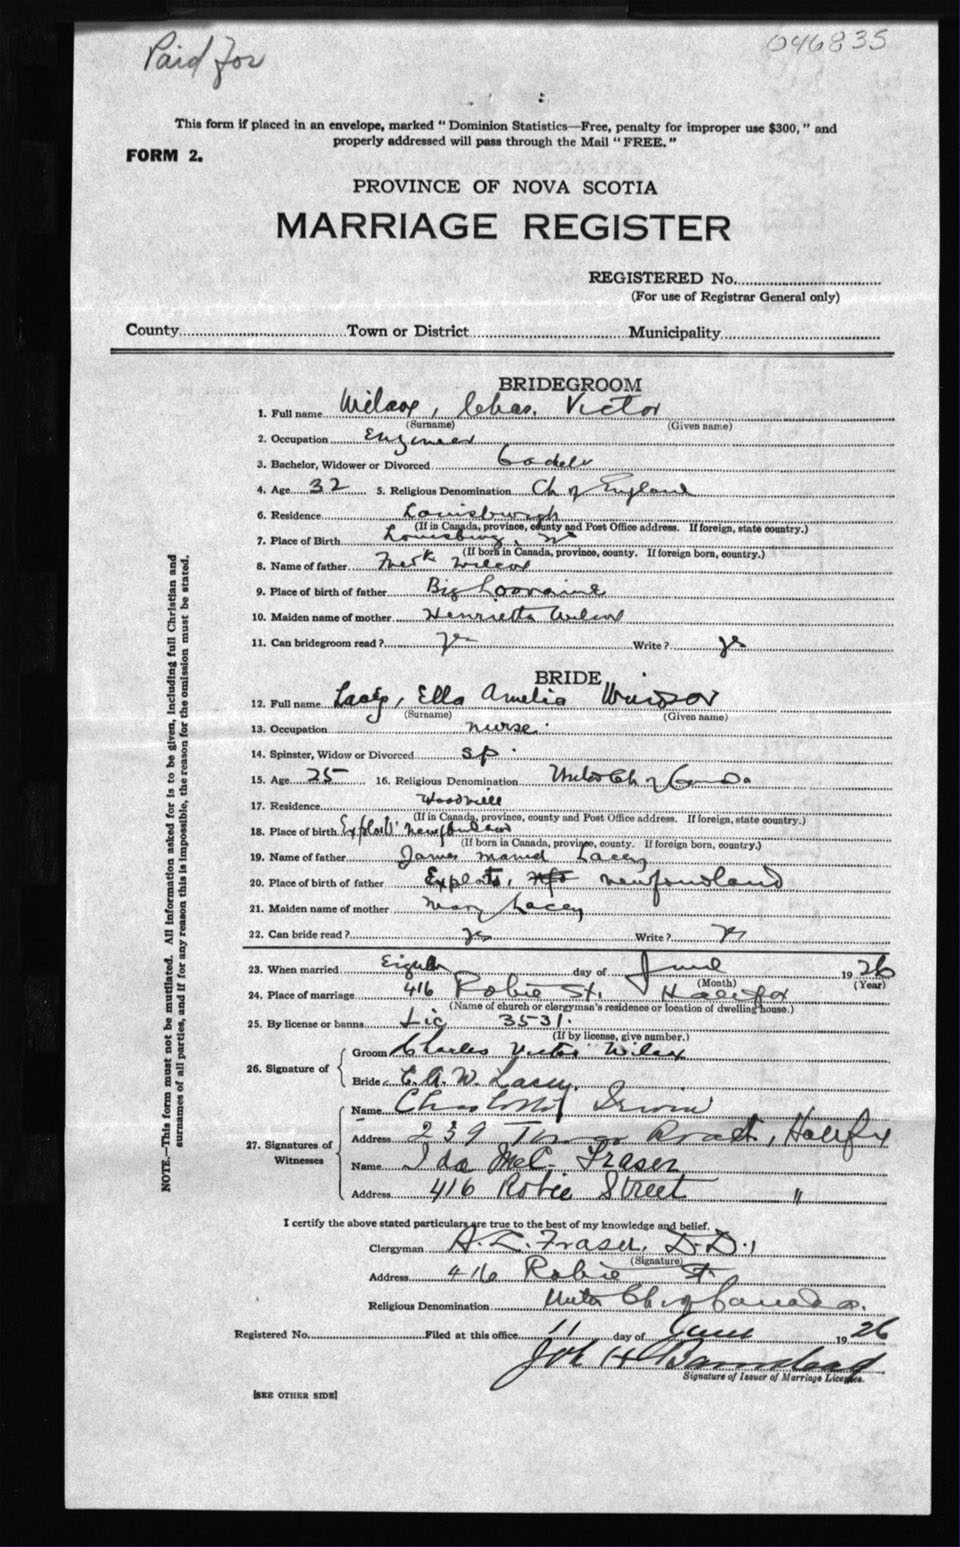 Paid for
046835
This form if placed in an envelope, marked "Dominion Statistics—Free, penalty for improper use $300," and
properly addressed will pass through the Mail "FREE."
FORM 2.
PROVINCE OF NOVA SCOTIA
MARRIAGE REGISTER
REGISTERED No.
(For use of Registrar General only)
County Town or District Municipality
BRIDEGROOM
1. Full name Wilcox, Chas. Victor
(Surname) (Given name)
2. Occupation Engineer
3. Bachelor, Widower or Divorced
4. Age 32 5. Religious Denomination Ch of England
6. Residence Louisburgh
(If in Canada, province, county and Post Office address. If foreign, state country.)
7. Place of Birth Louisburg,
(If born in Canada, province, county. If foreign born, country.)
8. Name of father Wilcox
9. Place of birth of father Big Lorraine
10. Maiden name of mother Henrietta Wilcox
11. Can bridegroom read? yes Write? yes
BRIDE
12. Full name Lacey, Ella Amelia Windsor
(Surname) (Given name)
13. Occupation nurse
14. Spinster, Widow or Divorced sp.
15. Age 25 16. Religious Denomination United Ch of Canada
17. Residence Woodville
(If in Canada, province, county and Post Office address. If foreign, state country.)
18. Place of birth Exploits Newfoundland
(If born in Canada, province, county. If foreign born, country.)
19. Name of father James Lacey
20. Place of birth of father Exploits, Newfoundland
21. Maiden name of mother Mary Lacey
22. Can bride read? yes Write? yes
23. When married Eighth day of June 1926
(Month) (Year)
24. Place of marriage 416 Robie St. Halifax
(Name of church or clergyman's residence or location of dwelling house.)
25. By license or banns Lic 3531.
(If by license, give number.)
26. Signature of
Groom Charles Victor Wilcox
Bride E. A. W. Lacey.
27. Signatures of Witnesses
Name Charlotte Irwin
Address 239 Tower Road, Halifax
Name Ida McC. Fraser
Address 416 Robie Street "
I certify the above stated particulars are true to the best of my knowledge and belief.
Clergyman Fraser, D.D.,
(Signature)
Address 416 Robie St
Religious Denomination United Ch of Canada.
Registered No. Filed at this office 11 day of June 1926
Signature of Issuer of Marriage Licenses.
[SEE OTHER SIDE]
NOTE.—This form must not be mutilated. All information asked for is to be given, including full Christian and
surnames of all parties, and if for any reason this is impossible, the reason for the omission must be stated.